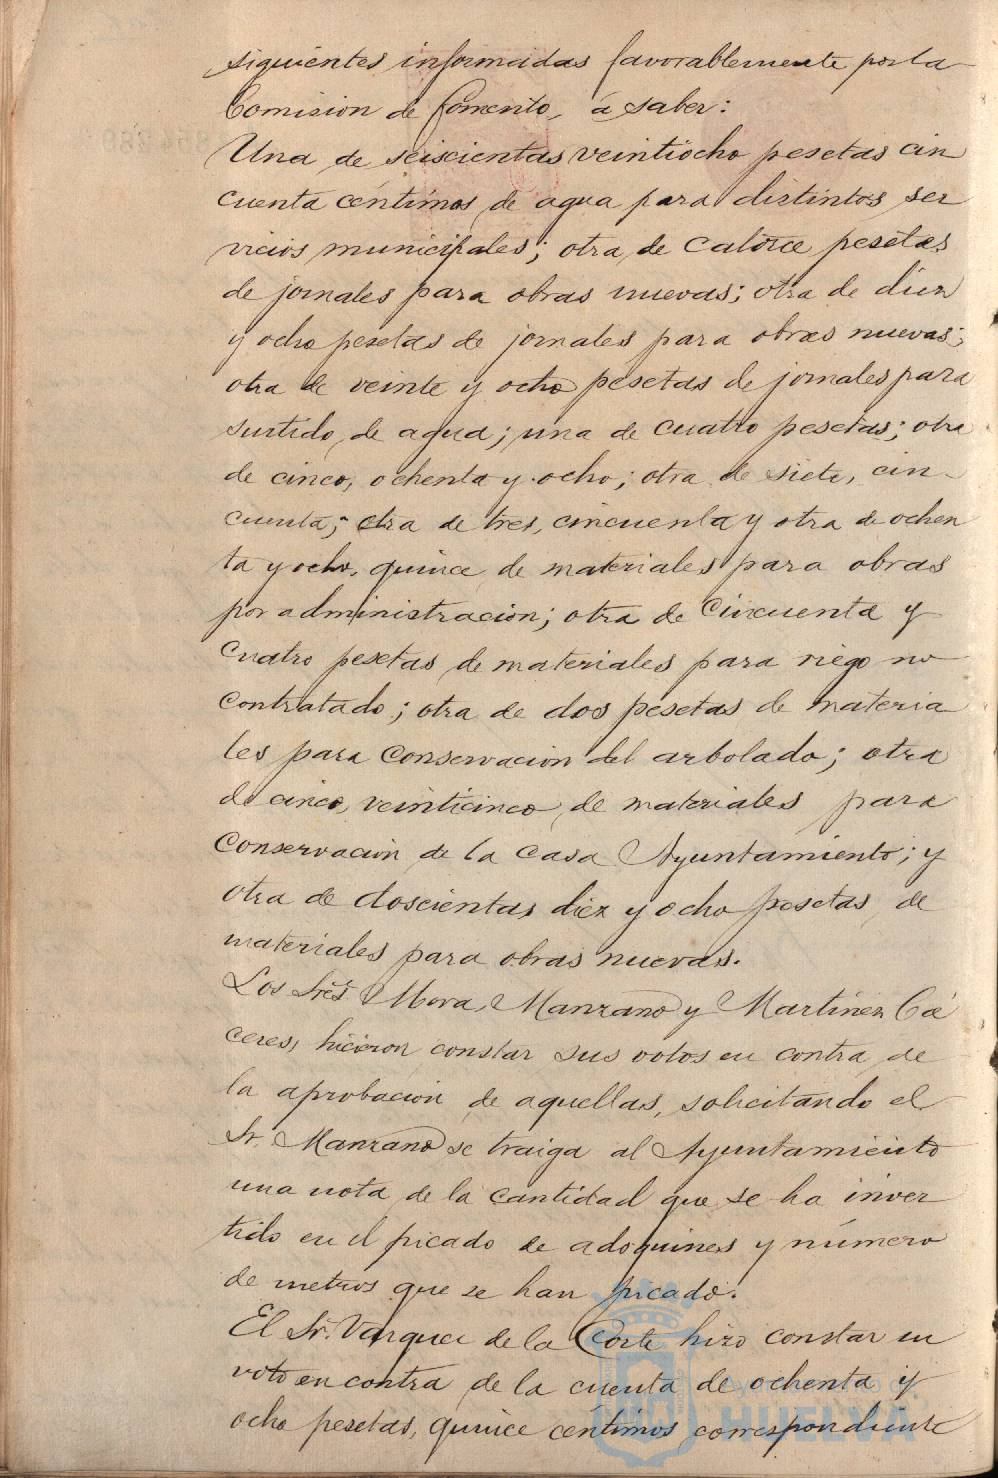 siguientes informadas favorablemente por la
Comision de fomento, á saber:
Una de seiscientas veintiocho pesetas cin
cuenta céntimos de agua para distintos ser
vicios municipales; otra de catorce pesetas
de jornales para obras nuevas; otra de diez
y ocho pesetas de jornales para obras nuevas;
otra de veinte y ocho pesetas de jornales para
surtido de agua; una de cuatro pesetas; otra
de cinco, ochenta y ocho; otra de siete, cin-
cuenta; otra de tres, cincuenta y otra de ochen
ta y ocho, quince de materiales para obras
por administracion; otra de cincuenta y
cuatro pesetas de materiales para riego no
contratado; otra de dos pesetas de materia
les para conservacion del arbolado; otra
de cinco, veinticinco de materiales para
conservación de la casa Ayuntamiento; y
otra de doscientas diez y ocho pesetas de
materiales para obras nuevas.
Los Sres Mora, Manzano y Martínez Cá
ceres, hicieron constar sus votos en contra de
la aprobacion de aquellas, solicitando el
Sr. Manzano se traiga al Ayuntamiento
una nota de la cantidad que se ha inver
tido en el picado de adoquines y número
de metros que se han picado.
El Sr. Vazquez de la Corte hizo constar su
voto en contra de la cuenta de ochenta y
ocho pesetas, quince céntimos correspondiente
Ayuntamiento de
HUELVA